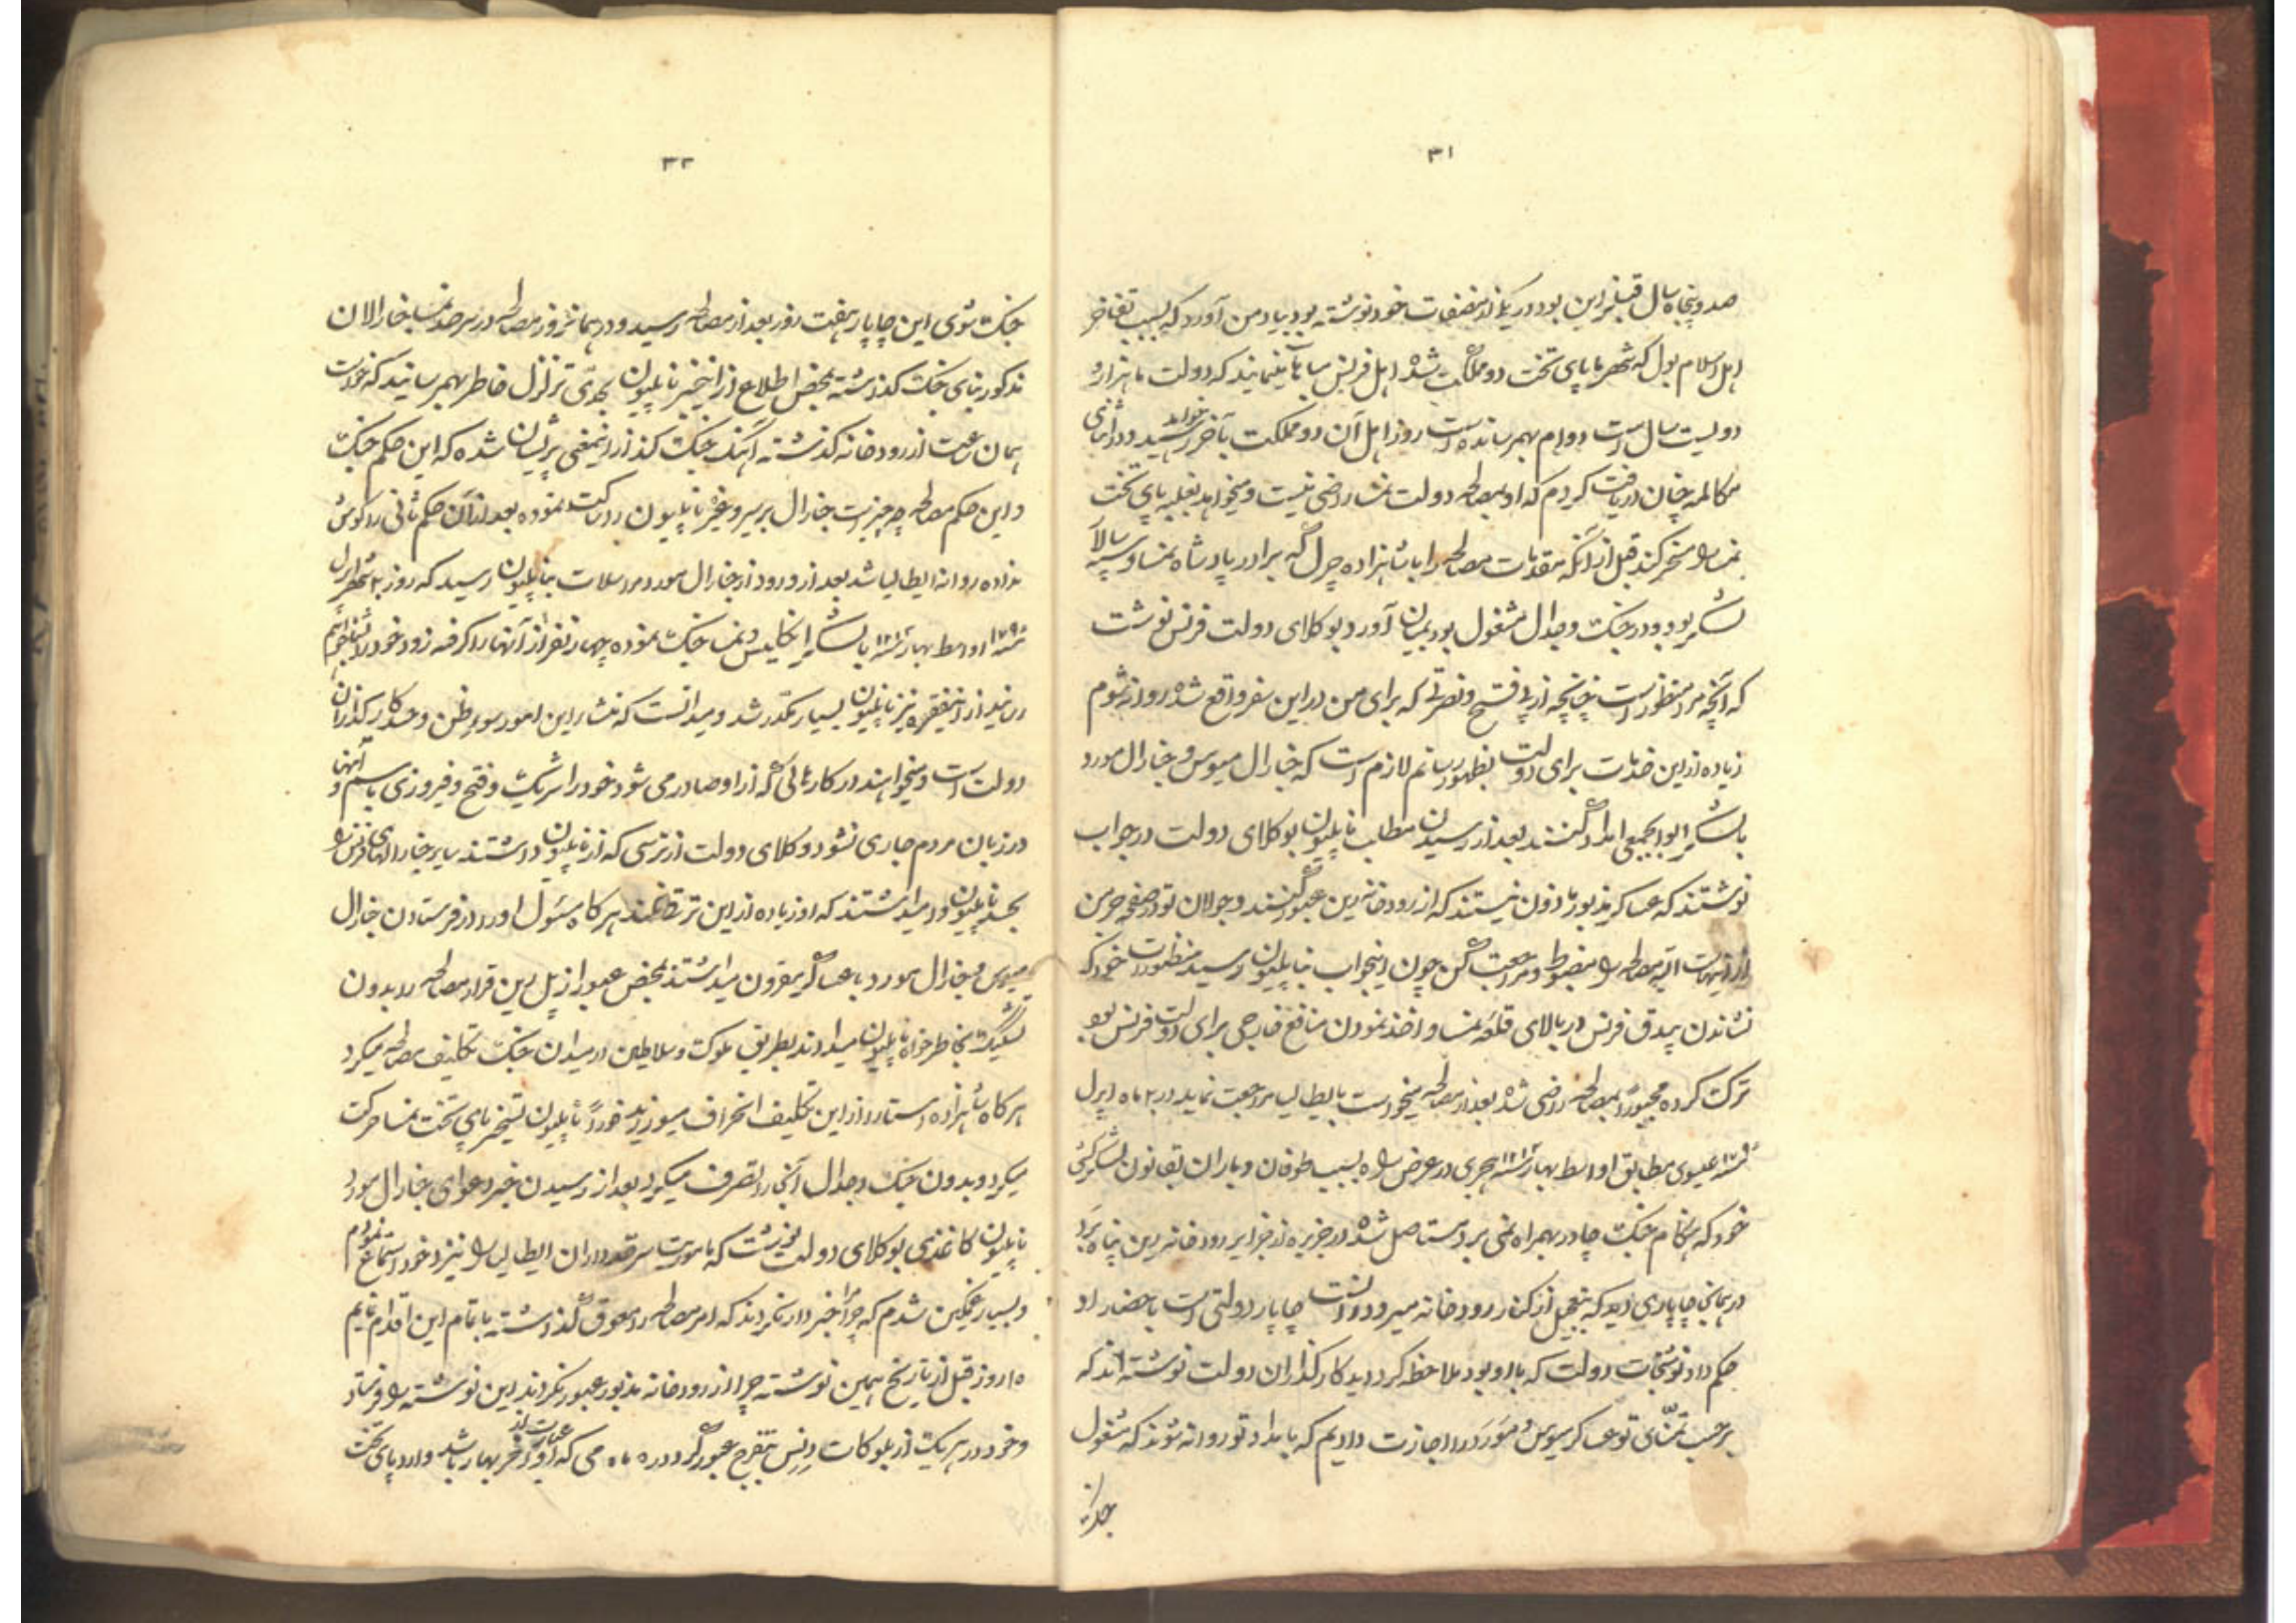 ۳۱
صد و پنجاه سال قبل از این بود در یکی از مصنفات خود نوشته بود بیاد من آورد که بسبب تفاخر
اهل اسلام بول که شهر یا پای تخت دو مملکت شده اهل فرنس
دویست سال است دوام بهم رسانده است روز اهل آن دو مملکت بآخر خواهد رسید و در اثنای
مکالمه چنان دریافت کردم که او بمصالحه دولت نمسا راضی نیست و میخواهد بغلبه پای تخت
نمسا را مسخر کند قبل از آنکه مقدمات مصالحه را با شاهزاده چرل که برادر پادشاه نمسا و سپه سالار
لشکر بود و در جنگ و جدال مشغول بود بمیان آورد بوکلای دولت فرنس نوشت
که آنچه مرا منظور است چنانچه از پی فتح و نصرتی که برای من در این سفر واقع شده روانه شوم
زیاده از این خدمات برای دولت بظهور رسانم لازم است که جنارال میوس و جنارال مورد
با لشکر ابوابجمعی امداد کنند بعد از رسیدن مطالب ناپلیون بوکلای دولت در جواب
نوشتند که عساکر مزبور ماذون نیستند که از رودخانه رین عبور کنند و جولان تو در صفحه جرمن
از آن مصالحه را مضبوط و مراجعت کن چون اینجواب بناپلیون رسید منظورات خود که
نشاندن بیدق فرنس در بالای قلعه نمسا و اخذ نمودن منافع خارجی برای دولت فرنس بود
ترک کرده مجبوراً بمصالحه راضی شده بعد از مصالحه میخواست بایطالیا مراجعت نماید در ۲ ماه اپرل
عیسوی مطابق اواسط بهار هجری در عرض راه بسبب طوفان و باران بقانون لشکرکشی
خود که هنگام جنگ چادر بهمراه نمی برد مستاصل شده در جزیره از جزایر رودخانه رین پناه برد
در همانجا چاپاری دید که بتعجیل از کنار رودخانه میرود دانست چاپار دولتی است باحضار او
حکم داد نوشتجات دولت که با او بود ملاحظه کرد دید کارگذاران دولت نوشته اند که
برحسب تمنای تو عساکر میوس و مورد را اجازت دادیم که بامداد تو روانه شوند که مشغول
جنگ
۳۲
جنگ شوی این چاپار هفت روز بعد از مصالحه رسید و در همانروز مصالحه در سرحد نمسا جنارالان
مذکور بنای جنگ گذاشته بمحض اطلاع از این خبر ناپلیون بحدی تزلزل خاطر بهم رسانید که خواست
همان ساعت از رودخانه گذشته آهنگ جنگ کند از اینمعنی پریشان شده که این حکم جنگ
و این حکم مصالحه چه چیز است جنارال برسر و غیره ناپلیون را ساکت نموده بعد از آن حکم ثانی را گوش
نداده روانه ایطالیا شد بعد از ورود از جنارال مورد مراسلات بناپلیون رسید که روز ۲ شهر اپرل
اواسط بهار با لشکر انگلیس و نمسا جنگ نموده چهار نفر از آنها را گرفته زود خود را بشما خواهم
رسانید از اینفقره نیز ناپلیون بسیار مکدر شد و میدانست که منشاء این امور سوء ظن و حسد کارگذاران
دولت است و میخواهند در کارهائی که از او صادر می شود خود را شریک و فتح و فیروزی باسم آنها و
در زبان مردم جاری نشود وکلای دولت از ترسی که از ناپلیون داشتند سایر جنارالهای فرنس را
بحسد ناپلیون وا میداشتند که او زیاده از این ترقی نکند هر گاه مسئول او را در فرستادن جنارال
میوس و جنارال مورد با عساکر مقرون میداشتند بمحض عبور از پل رین قرار مصالحه را بدون
تشکیک بخاطر خواه ناپلیون میدادند بطریق ملوک و سلاطین در میدان جنگ تکلیف مصالحه میکرد
هر گاه شاهزاده استارد از این تکلیف انحراف میورزید فوراً ناپلیون بتسخیر پای تخت نمسا حرکت
میکرد و بدون جنگ و جدال آنجا را تصرف میکرد بعد از رسیدن خبر دعوای جنارال مورد
ناپلیون کاغذی بوکلای دولت نوشت که ماموریت سرحدداران ایطالیا را نیز خود استماع نمودم
و بسیار غمگین شدم که چرا مرا خبردار نکردند که امر مصالحه را معوق گذاشته باتمام این اقدام نمایم
۱۵ روز قبل از تاریخ همین نوشته چرا از رودخانه مزبور عبور نکردند این نوشته را فرستاد
و خود در هر یک از بلوکات ونس بتفرج عبور کرد در ۵ ماه می که عبارت از اواخر بهار باشد وارد پای تخت